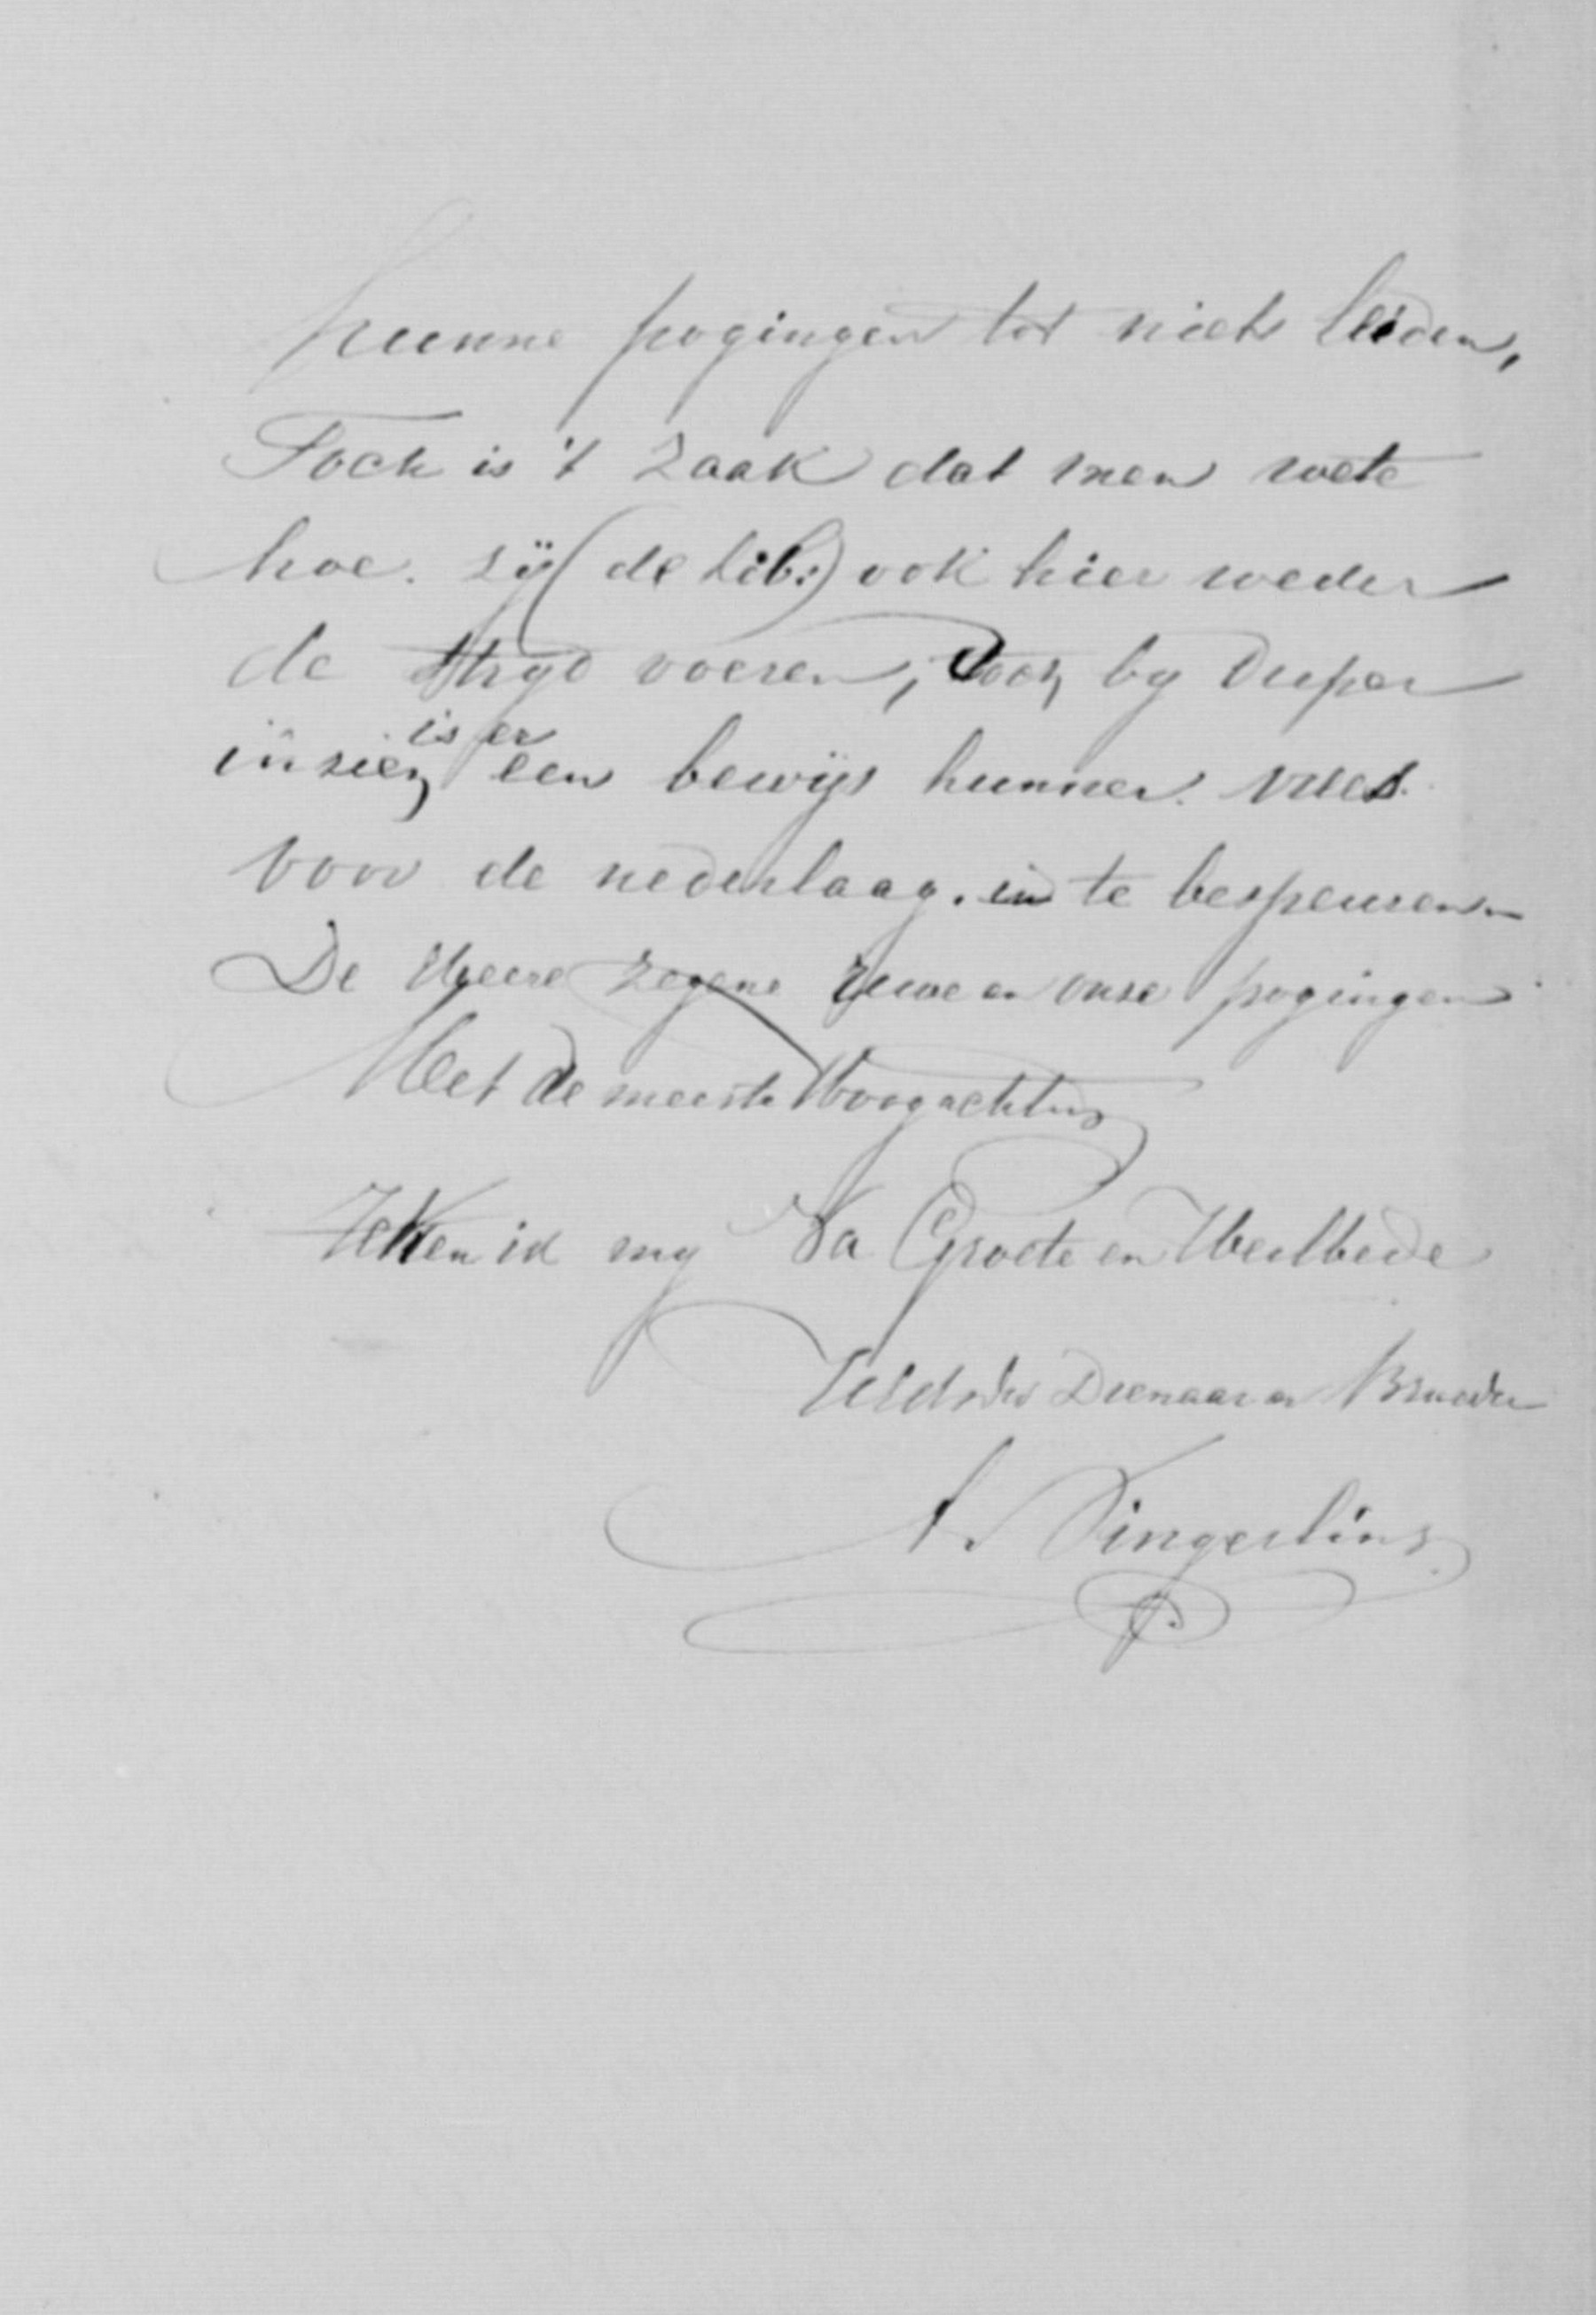 hunne pogingen tot niets leiden,
Toch is 't zaak dat men wete
hoe. zij (de Lib:) ook hier weder
de strijd voeren, doch by dieper
is er
inzien een bewijs hunner vrees
voor de nederlaag. in te bespeuren
De Heere zegene Uwe en onze pogingen
Met de meeste Hoogachting
Teken ik my Va Groote en Weelbede
Dienaar en Broeder
A. Vingerling